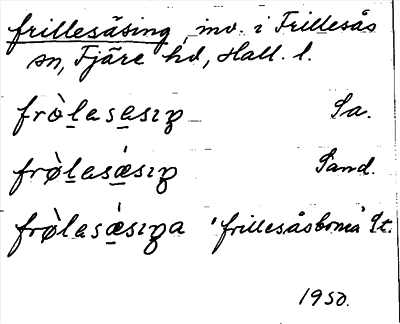 frillesåsing, inv. i Frillesås
sn, Fjäre hd, Hall. l.
fròlasasıŋ Sa.
frø̀lasæ̀sıŋ Sand.
frø̀lasæ̀sıŋa 'frillesåsborna' St.
1950.